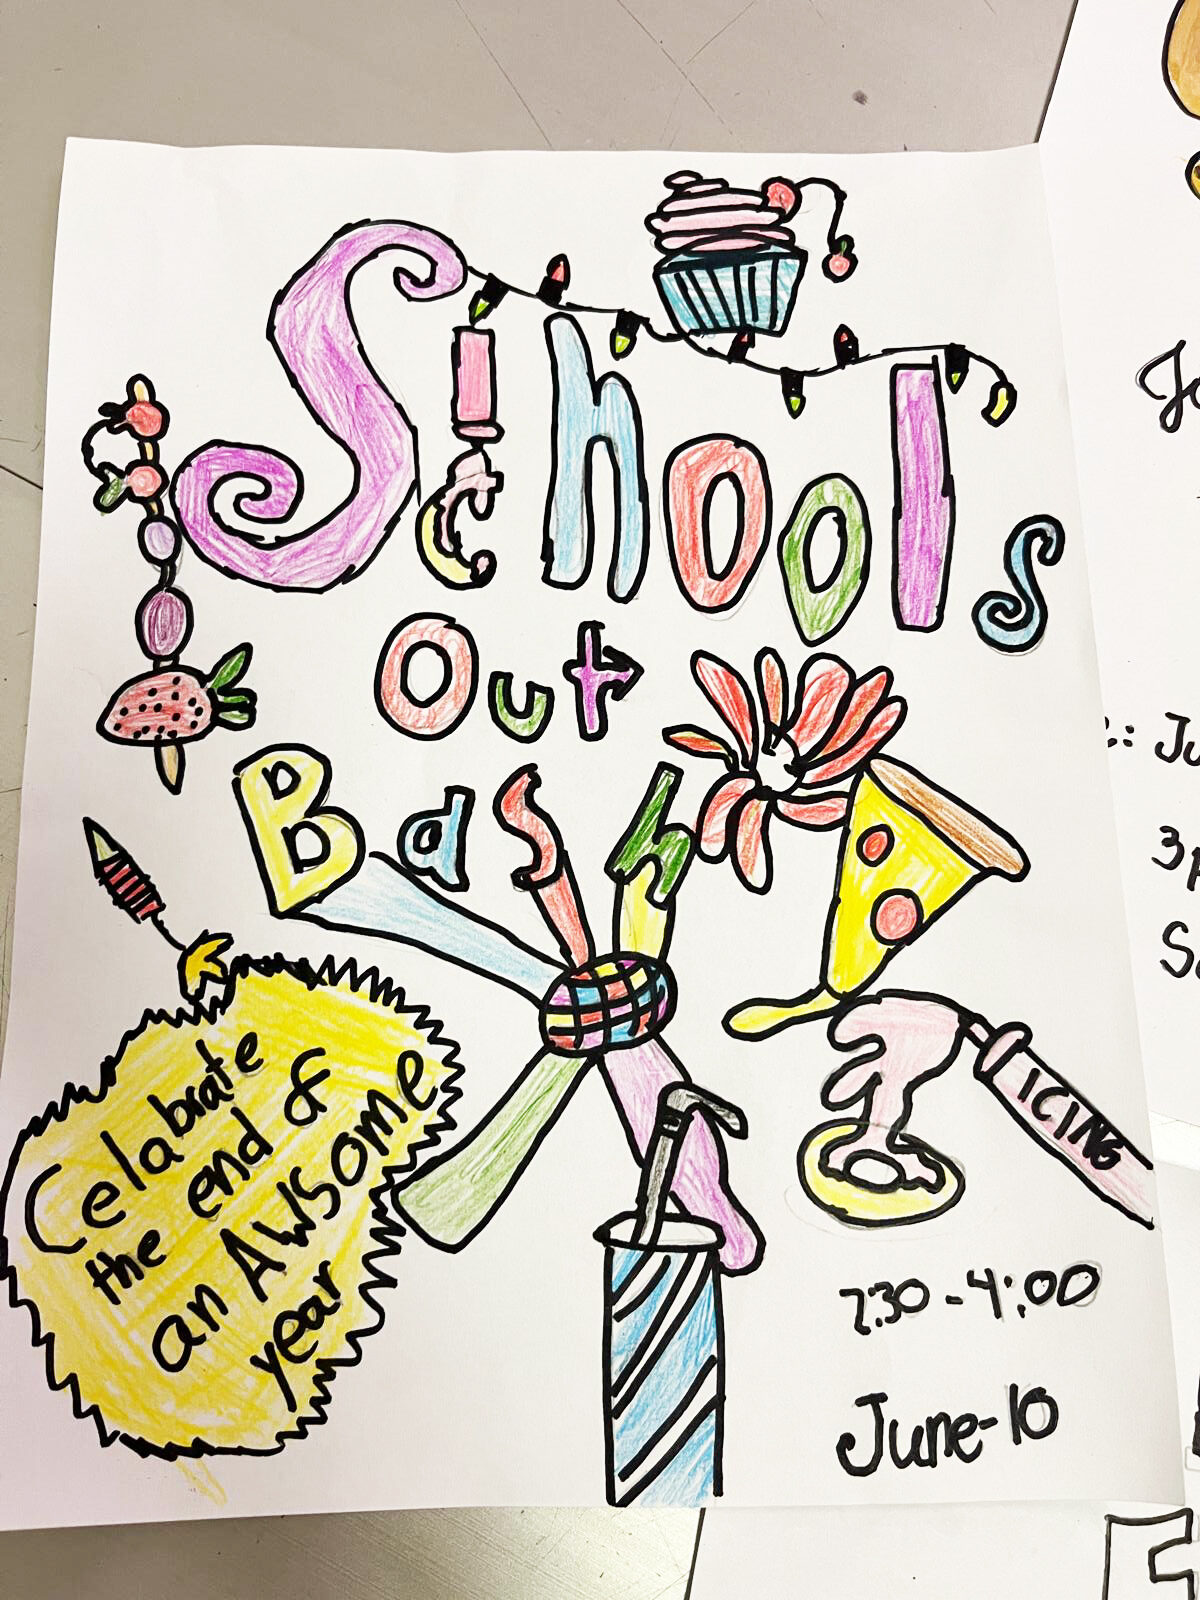 Schools
Out
Bash
Celabrate
the end of
an AWSome
year
ICING
2:30 - 4:00
June-10